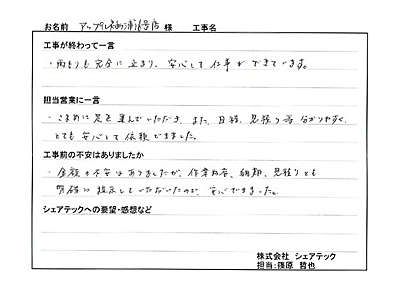 お名前 アップル 店 様 工事名
工事が終わって一言
・雨もりも完全に止まり、安心して仕事ができています。
担当営業に一言
・こまめに足を運んでいただき、また、日程、見積り等分かりやすく、
とても安心して依頼できました。
工事前の不安はありましたか
・金額の不安はありましたが、作業内容、納期、見積りとも
明確に提示していただいたので、安心できました。
シェアテックへの要望・感想など
株式会社 シェアテック
担当:篠原 哲也